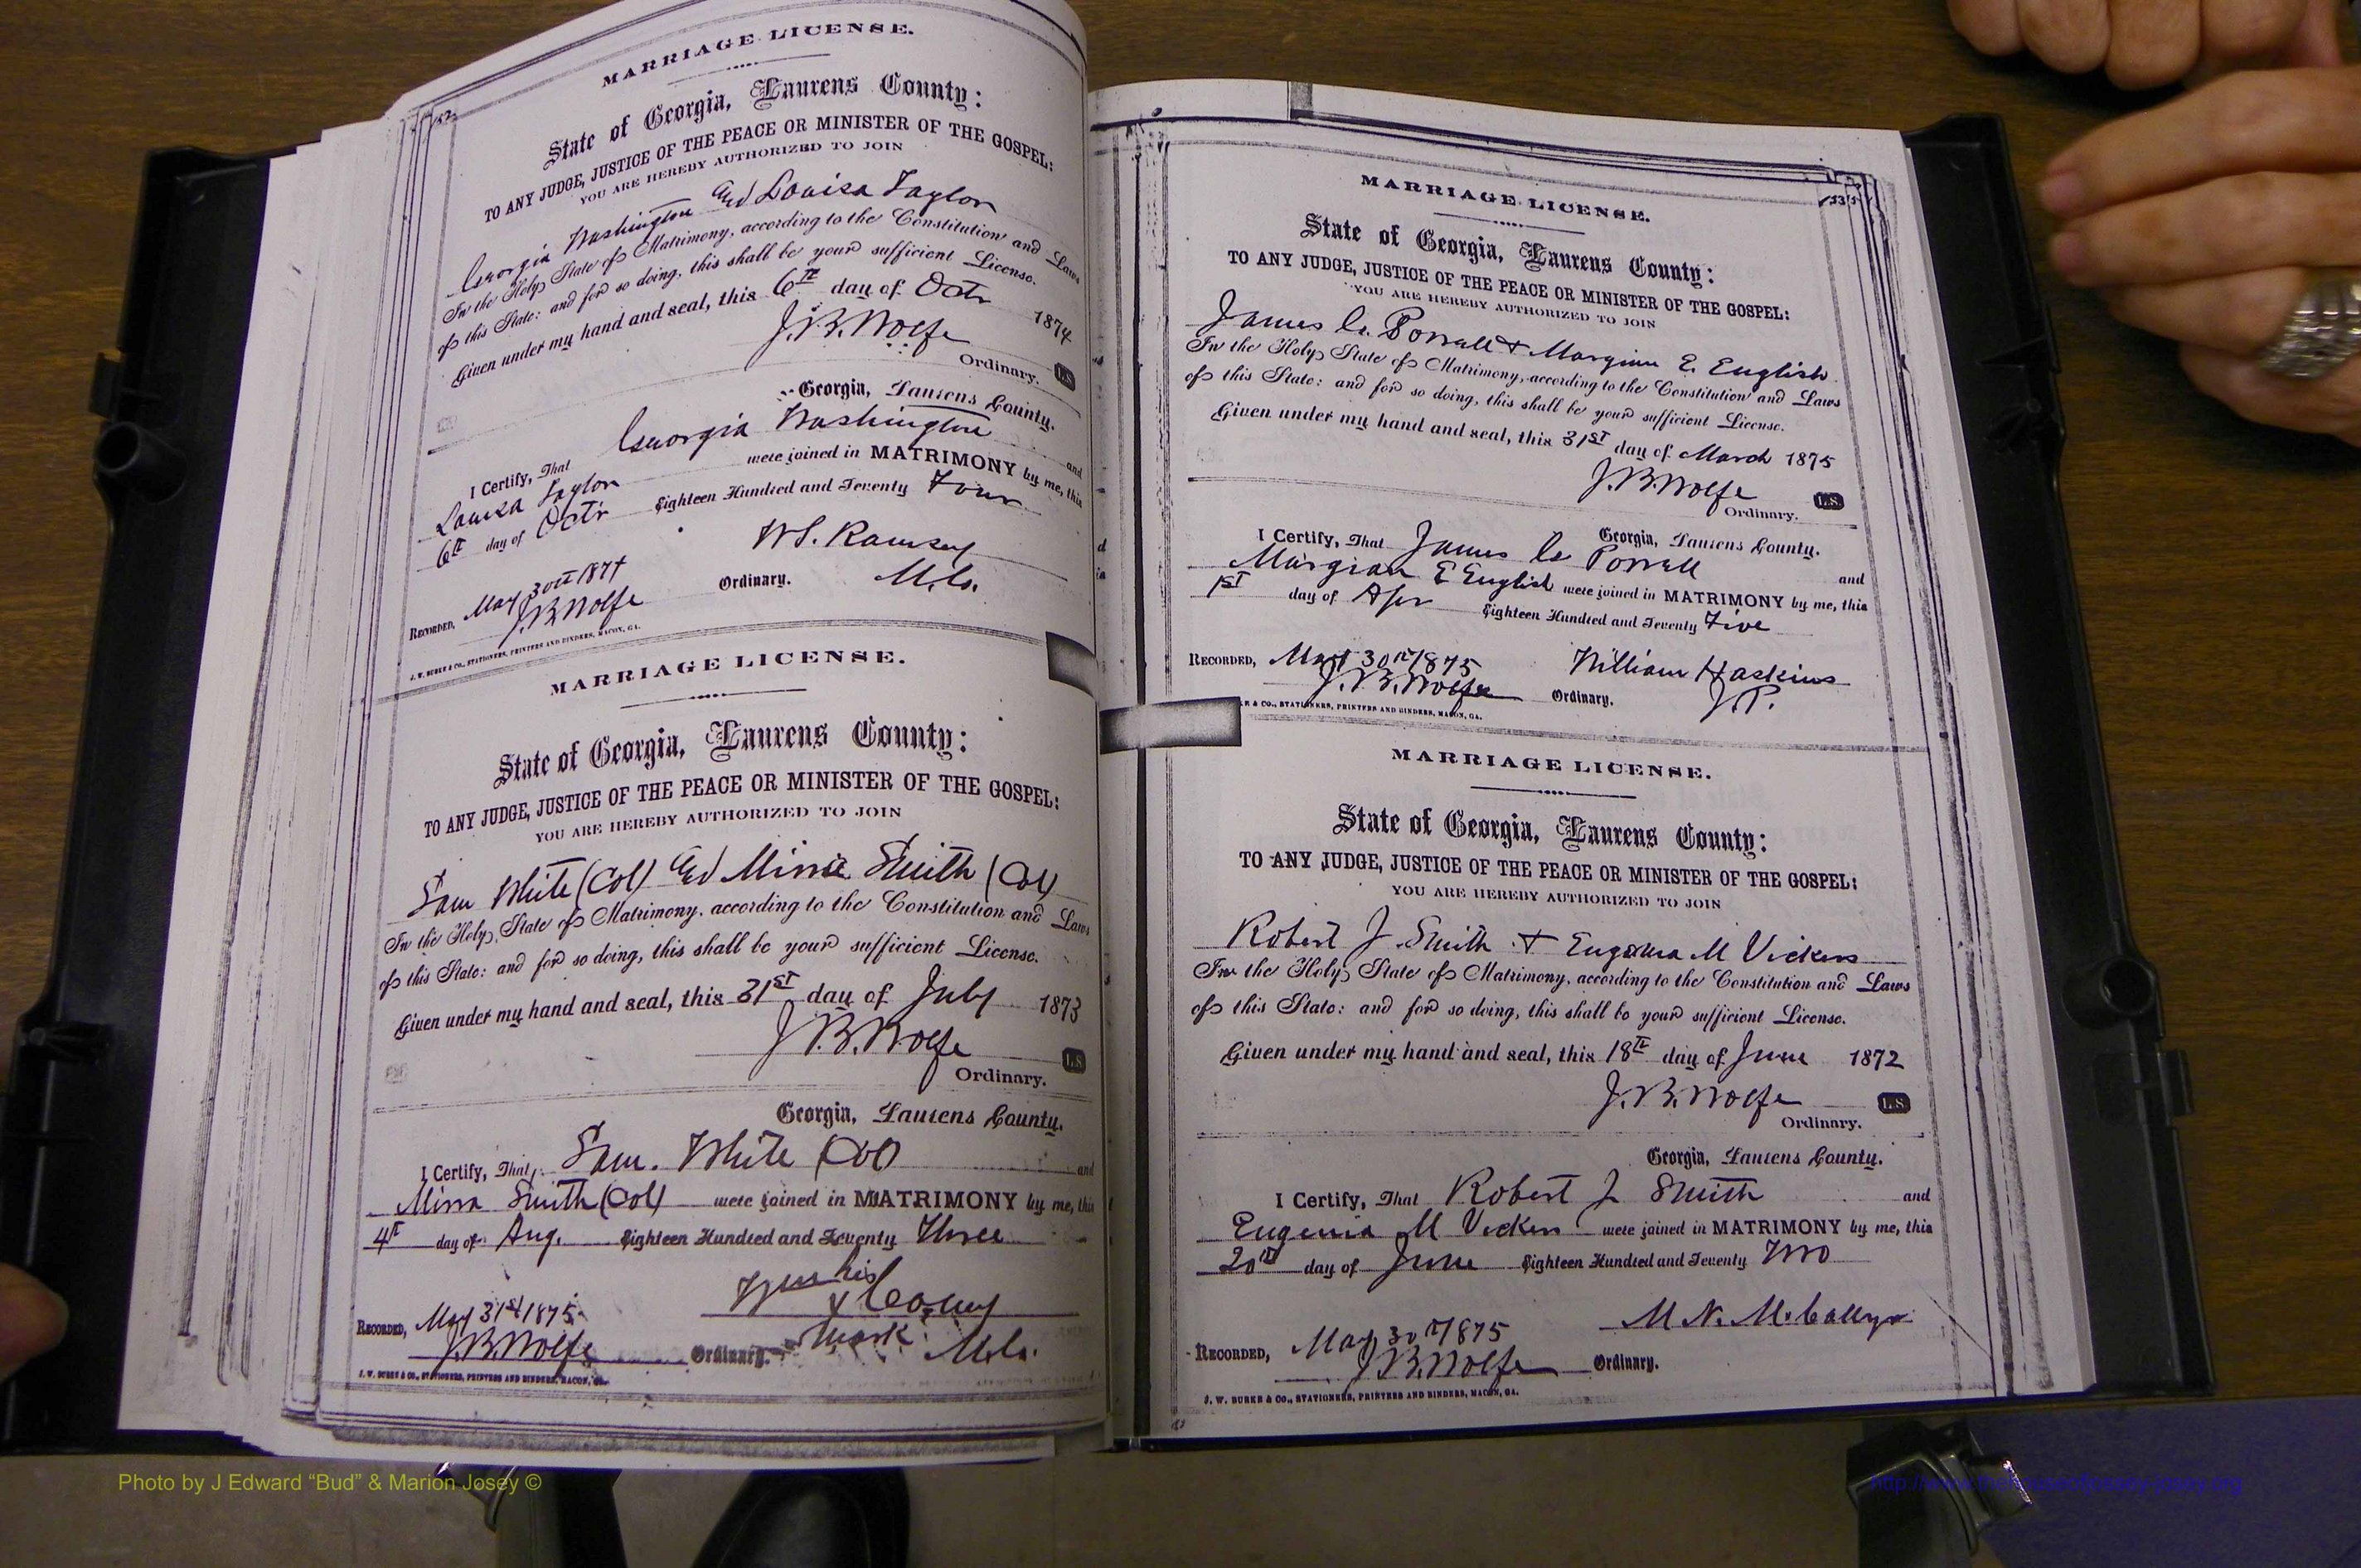 MARRIAGE LICENSE.
State of Georgia, Laurens County:
TO ANY JUDGE, JUSTICE OF THE PEACE OR MINISTER OF THE GOSPEL:
YOU ARE HEREBY AUTHORIZED TO JOIN
Georgia Washington And Louisa Taylor
In the Holy State of Matrimony, according to the Constitution and Laws
of this State: and for so doing, this shall be your sufficient License.
Given under my hand and seal, this 6th day of Octr 1874
J.B. Wolfe
Ordinary. L.S.
Georgia, Laurens County.
I Certify, That Georgia Washington and
Louisa Taylor were joined in MATRIMONY by me, this
6th day of Octr Eighteen Hundred and Seventy Four
W.S. Ramsey
RECORDED, May 30th 187 Ordinary. M.G.
J.B. Wolfe
J. W. BURKE & CO., STATIONERS, PRINTERS AND BINDERS, MACON, GA.
MARRIAGE LICENSE.
State of Georgia, Laurens County:
TO ANY JUDGE, JUSTICE OF THE PEACE OR MINISTER OF THE GOSPEL:
YOU ARE HEREBY AUTHORIZED TO JOIN
Sam White (Col) And Smith (Col)
In the Holy State of Matrimony, according to the Constitution and Laws
of this State: and for so doing, this shall be your sufficient License.
Given under my hand and seal, this 31st day of July 1873
J.B. Wolfe
L.S.
Ordinary.
Georgia, Laurens County.
I Certify, That Sam. White (Col) and
Smith (Col) were joined in MATRIMONY by me, this
4th day of Aug. Eighteen Hundred and Seventy Three
his
x
RECORDED, May 31st 1875
J.B. Wolfe Ordinary. mark M.G.
J. W. BURKE & CO., STATIONERS, PRINTERS AND BINDERS, MACON, GA.
MARRIAGE LICENSE.
State of Georgia, Laurens County:
TO ANY JUDGE, JUSTICE OF THE PEACE OR MINISTER OF THE GOSPEL:
YOU ARE HEREBY AUTHORIZED TO JOIN
James C. + E. English
In the Holy State of Matrimony, according to the Constitution and Laws
of this State: and for so doing, this shall be your sufficient License.
Given under my hand and seal, this 31st day of March 1875
J.B. Wolfe
L.S.
Ordinary.
Georgia, Laurens County.
I Certify, That James C. and
E English were joined in MATRIMONY by me, this
1st day of Apr Eighteen Hundred and Seventy Five
RECORDED, May 30th 1875 William Haskins
J.B. Wolfe Ordinary. J.P.
& CO., STATIONERS, PRINTERS AND BINDERS, MACON, GA.
MARRIAGE LICENSE.
State of Georgia, Laurens County:
TO ANY JUDGE, JUSTICE OF THE PEACE OR MINISTER OF THE GOSPEL:
YOU ARE HEREBY AUTHORIZED TO JOIN
Robert J. Smith + Eugenia M Vickers
In the Holy State of Matrimony, according to the Constitution and Laws
of this State: and for so doing, this shall be your sufficient License.
Given under my hand and seal, this 18th day of June 1872
J.B. Wolfe L.S.
Ordinary.
Georgia, Laurens County.
I Certify, That Robert J Smith and
Eugenia M Vickers were joined in MATRIMONY by me, this
20th day of June Eighteen Hundred and Seventy Two
M N.
RECORDED, May 30th 1875
J.B. Wolfe Ordinary.
J. W. BURKE & CO., STATIONERS, PRINTERS AND BINDERS, MACON, GA.
Photo by J Edward “Bud” & Marion Josey ©